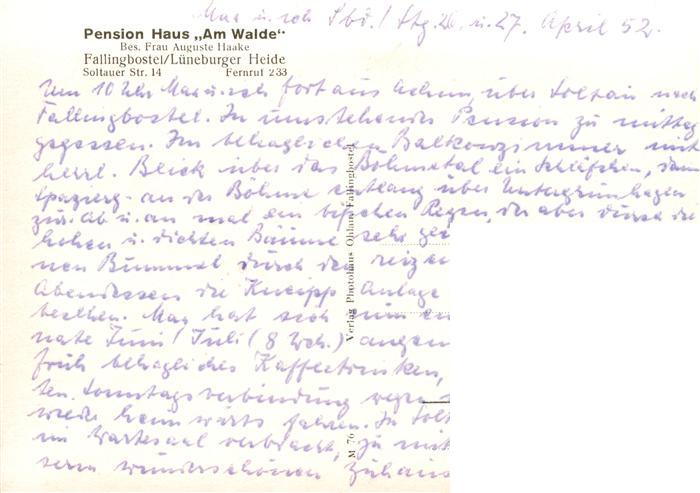 Max u. ich Sbd./Stg. 26. u. 27. April 52.
Pension Haus „Am Walde“
Bes. Frau Auguste Haake
Fallingbostel/Lüneburger Heide
Soltauer Str. 14 Fernruf 233
Um 10 Uhr Max u. ich fort aus Achim, über Soltau nach
Fallingbostel. In umstehender Pension zu mittag
gegessen. Im behaglichen Balkonzimmer mit
herrl. Blick über das Böhmetal ein Schläfchen, dann
Spazierg. an der Böhme entlang über
zur. Ab u. an mal ein bißchen Regen, der aber durch die
hohen u. dichten Bäume sehr
nen Bummel durch den reizen
Abendessen die Kneipp Anlage
besehen. Max hat sich zum
nate Juni/Juli (8 Woh.) angem
früh behagliches Kaffeetrinken,
ten. Sonntagsverbindung wegen
wieder heimwärts fahren. In Solt
im Wartesaal verbracht, zu mit
serm wunderschönen Zuhaus
Verlag Photohaus Ohland Fallingbostel
M 76